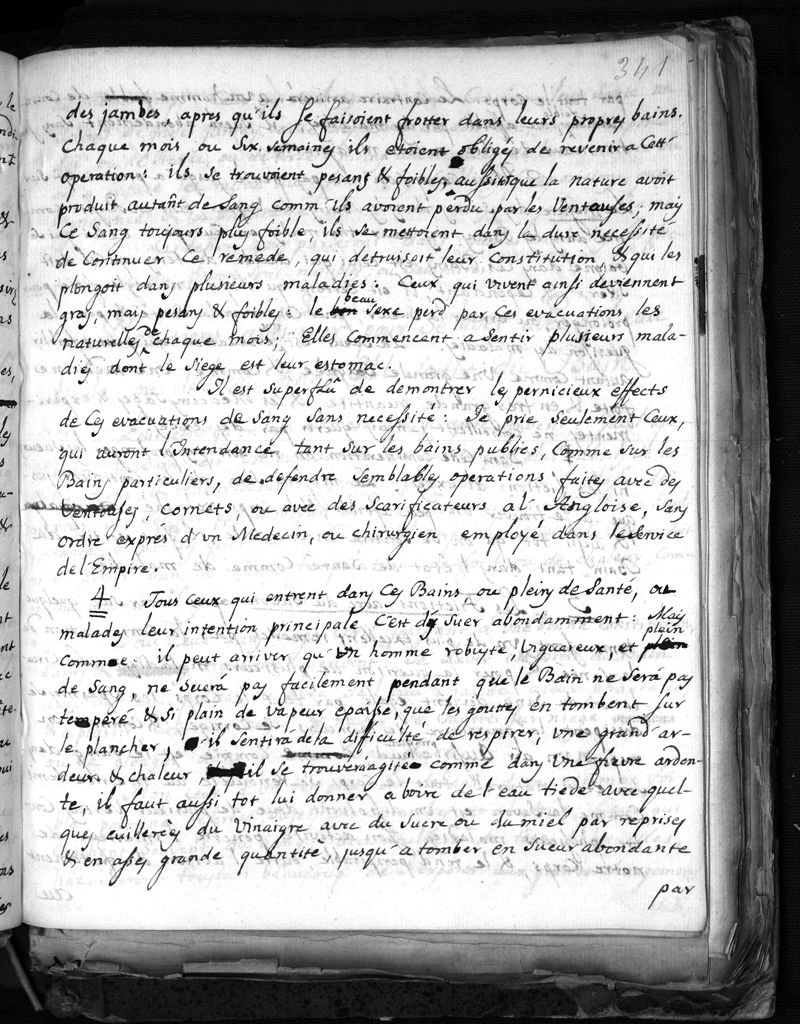 341
des jambes apres qu'ils se faisoient frotter dans leurs propres bains.
Chaque mois, ou six semaines ils etoient obligés de revenir a Cett'
operation: ils se trouvoient pesans & foibles, aussitôt que la nature avoit
produit autant de Sang comm'ils avoient perdu par les Ventouses; mais
Ce Sang toujours plus foible, ils se mettoient dans la dure necessité
de Continuer Ce remede, qui detruisoit leur Constitution, & qui les
plongoit dans plusieurs maladies: Ceux qui vivent ainsi deviennent
gras, mais pesans & foibles: le beau Sexe perd par Ces evacuations les
naturelles de chaque mois; Elles Commencent a Sentir plusieurs mala-
dies dont le Siege est leur estomac.
Il est Superflû de demontrer les pernicieux effects
de Ces evacuations de Sang Sans necessité: Je prie Seulement Ceux,
qui auront l'Intendance tant Sur les bains publics, Comme Sur les
Bains particuliers, de defendre Semblables operations faites avec des
Ventouses, Cornets, ou avec des Scarificateurs a l'Angloise, Sans
ordre exprés d'un Medecin, ou chirurgien employé dans le Service
de l'Empire.
4 Tous Ceux qui entrent dans Ces Bains ou pleins de Santé, ou
malades leur intention principale C'est de Suer abondamment: Mais
Comme il peut arriver qu'un homme robuste, viguareux, et plein
de Sang, ne Suera pas facilement pendant que le Bain ne Sera pas
temperé & Si plain de vapeur epaisse, que les gouttes en tombent Sur
le plancher, il Sentirá de la difficulté de respirer, une grand' ar-
deur & chaleur, il Se trouvera agité comme dans une fievre arden-
te, il faut aussi tot lui donner a boire de l'eau tiede avec quel-
ques cuillerées du Vinaigre avec du Sucre ou du miel par reprises
& en asses grande quantité, jusqu'a tomber en Sueur abondante
par